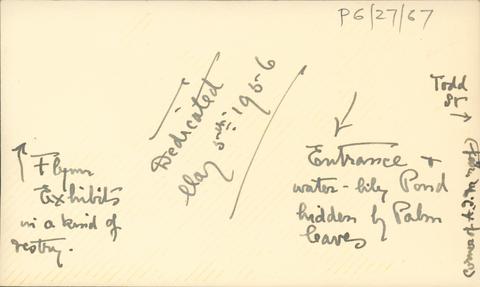 PG/27/67
Dedicated
May 5th. 1956
Todd
St
Flynn
Exhibits
in a kind of
vestry.
Entrance +
water-lily Pond
hidden by Palm
leaves
Corner of A.I.M